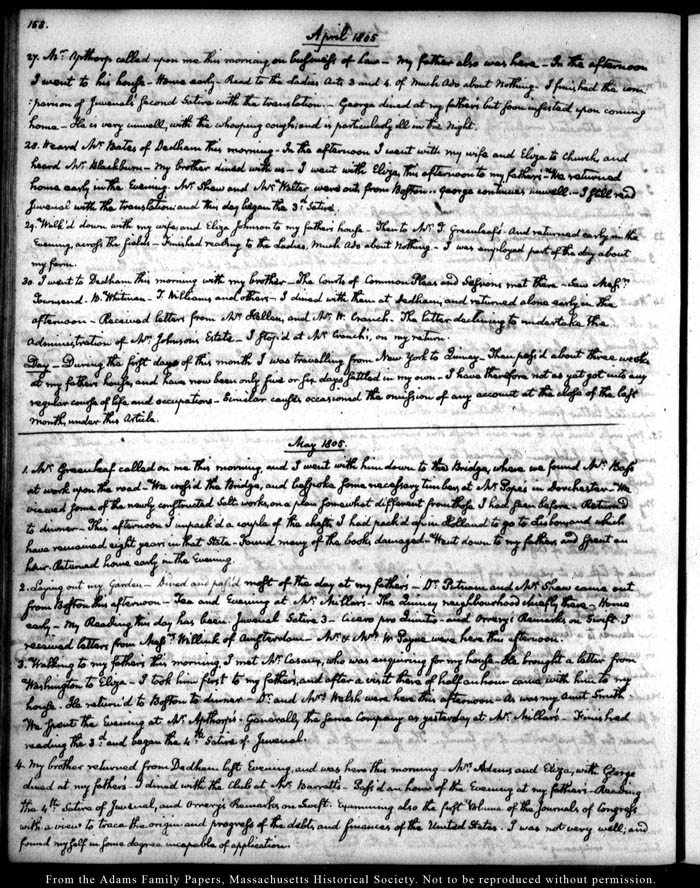 158.
April 1805
27. Mr. Apthorp called upon me this morning on business of Law — My father also was here — In the afternoon
I went to his house — Home early — Read to the Ladies Acts 3 and 4 of Much Ado about Nothing — I finished the com-
-parison of Juvenal's second Satire with the translation — George dined at my father's but soon insisted upon coming
home — He is very unwell, with the whooping cough; and is particularly ill in the Night.
28. Heard Mr. Bates of Dedham this morning — In the afternoon I went with my wife and Eliza to Church, and
heard Mr. Blackburn — My brother dined with us — I went with Eliza, this afternoon to my father's — We returned
home early in the Evening. Mr. Shaw and Mr. Walter were out from Boston .. George continues unwell — I still read
Juvenal with the translation; and this day began the 3d. Satire.
29. Walk'd down with my wife, and Eliza Johnson to my father's house — Then to Mr. T. Greenleaf's — And returned early in the
Evening, across the fields — Finished reading to the Ladies, Much Ado about Nothing — I was employed part of the day about
my farm.
30. I went to Dedham this morning with my brother — The Courts of Common Pleas and Sessions met there — Saw Messrs.
Townsend — B. Whitman — T. Williams and others — I dined with them at Dedham, and returned alone early in the
afternoon — Received letters from Mr. Hellen, and Mr. W. Cranch. The latter declining to undertake the
Administration of Mr. Johnson's Estate — I stop'd at Mr. Cranch's, on my return.
Day — During the first days of this month I was travelling from New York to Quincy — Then pass'd about three weeks
at my father's house, and have now been only five or six days settled in my own — I have therefore not as yet got into any
regular course of life and occupations — Similar causes occasioned the omission of any account at the close of the last
month, under this Article.
May 1805.
1. Mr. Greenleaf called on me this morning, and I went with him down to the Bridge, where we found Mr. Bass
at work upon the road — We cross'd the Bridge, and bespoke some necessary timber, at Mr. Pope's in Dorchester — We
viewed some of the newly constructed Salt works, on a plan somewhat different from those I had seen before — Returned
to dinner — This afternoon I unpack'd a couple of the chests I had pack'd up in Holland to go to Lisbon, and which
have remained eight years in that State — Found many of the books damaged — Went down to my father's and spent an
hour. Returned home early in the Evening.
2. Laying out my Garden — Dined and pass'd most of the day at my father's — Dr. Putnam and Mr. Shaw came out
from Boston this afternoon — Tea and Evening at Mr. Millar's — The Quincy neighbourhood chiefly there — Home
early — My Reading this day has been Juvenal Satire 3 — Cicero pro Quintio — and Orrery's Remarks on Swift. I
received letters from Messrs. Willink of Amsterdam — Mr. & Mrs. W. Payne were here this afternoon.
3. Walking to my father's this morning, I met Mr. Casaux, who was enquiring for my house — He brought a letter from
Washington to Eliza — I took him first to my father's, and after a visit there of half an hour came with him to my
house — He return'd to Boston to dinner — Dr. and Mrs. Welsh were here this afternoon — As was my Aunt Smith
We spent the Evening at Mr. Apthorp's — Generally the same Company as yesterday at Mr. Millar's — Finished
reading the 3d. and began the 4th. Satire of Juvenal.
4. My brother returned from Dedham last Evening, and was here this morning — Mrs. Adams and Eliza, with George
dined at my father's — I dined with the Club at Mr. Barrett's — Pass'd an hour of the Evening at my father's — Reading
the 4th. Satire of Juvenal, and Orrery's Remarks on Swift. Examining also the first Volume of the Journals of Congress
with a view to trace the origin and progress of the debts, and finances of the United States. I was not very well; and
found myself in some degree incapable of application.
From the Adams Family Papers, Massachusetts Historical Society. Not to be reproduced without permission.